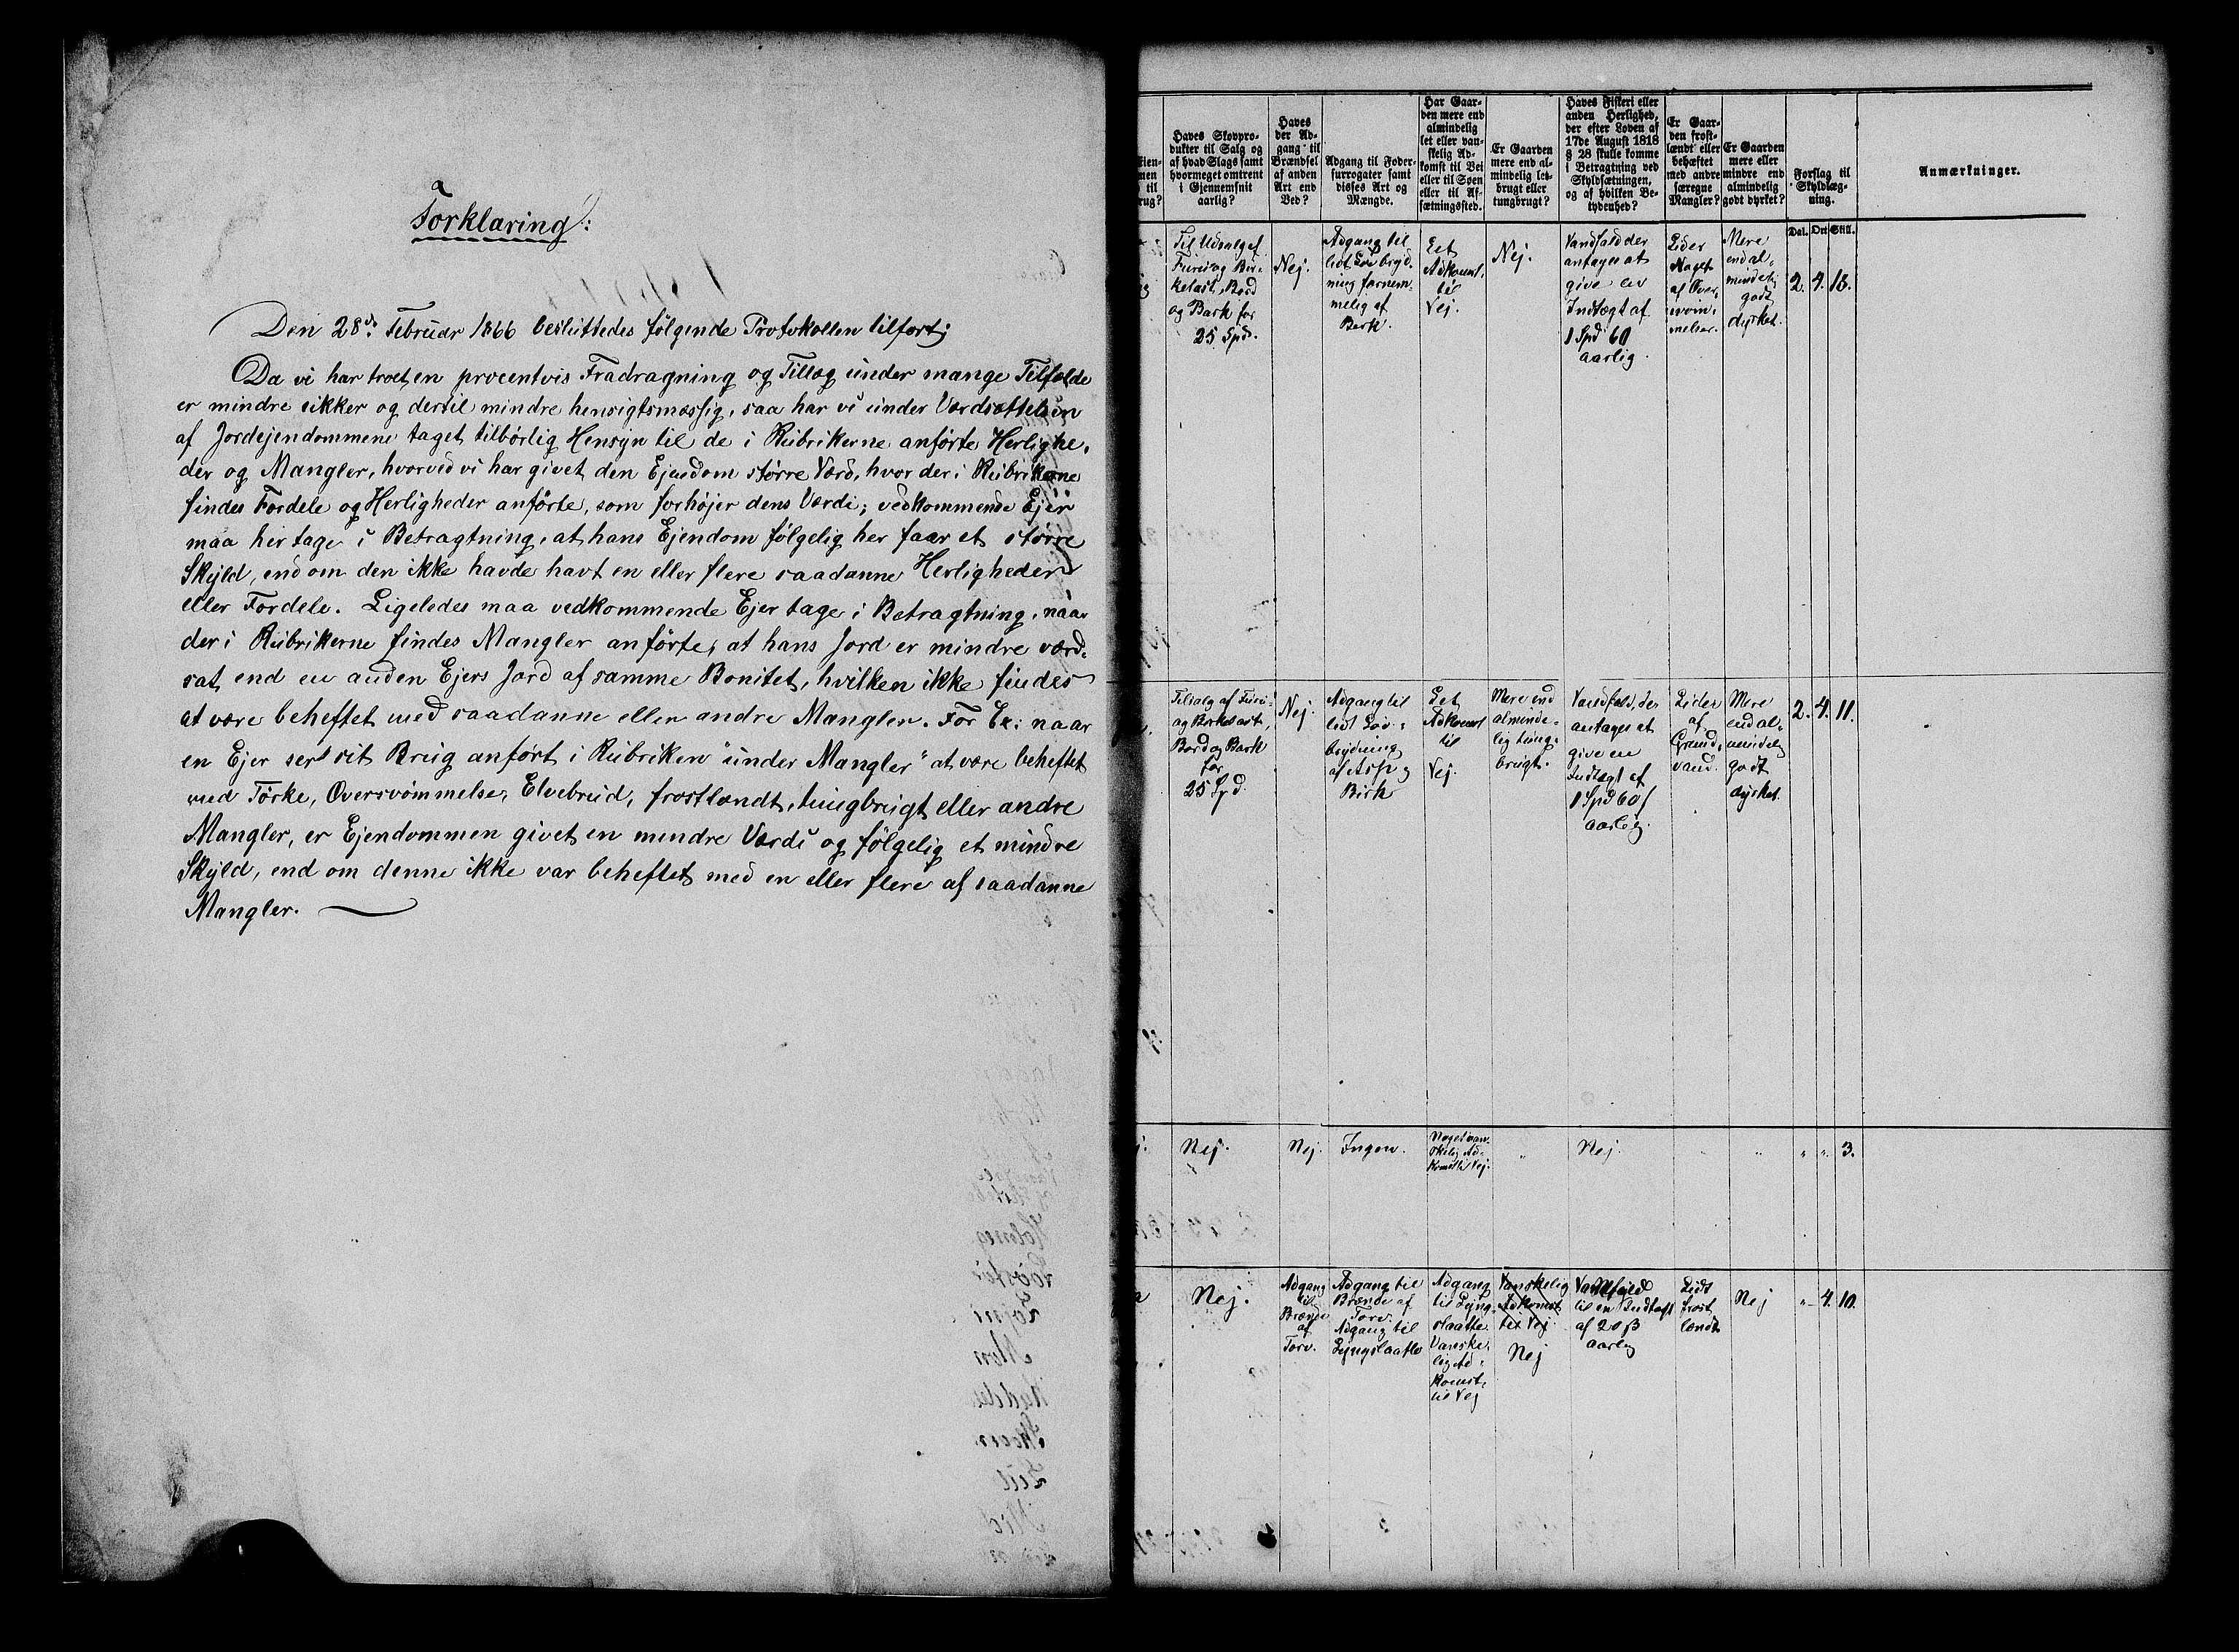 Forklaring:
Den 28de Februar 1866 besluttedes følgende Protokollen tilført:
Da vi har troet en procentvis Fradragning og Tillæg under mange Tilfælde
er mindre sikker og dertil mindre hensigtsmæssig, saa har vi under Værdsættelsen
af Jordejendommene taget tilbørlig Hensyn til de i Rubrikerne anførte Herlighe-
der og Mangler, hvorved vi har givet den Ejendom større Værd, hvor der i Rubrikerne
findes Fordele og Herligheder anførte, som forhøjer dens Værdi; vedkommende Ejer
maa her tage i Betragtning, at hans Ejendom følgelig her faar et større
Skyld, end om den ikke havde havt en eller flere saadanne Herligheder
eller Fordele. Ligeledes maa vedkommende Ejer tage i Betragtning, naar
der i Rubrikerne findes Mangler anførte, at hans Jord er mindre værd-
sat end en anden Ejers Jord af samme Bonitet, hvilken ikke findes
at være beheftet med saadanne eller andre Mangler. For Ex: naar
en Ejer ser sit Brug anført i Rubriken "under Mangler" at være beheftet
med Tørke, Oversvømmelse, Elvebrud, frostlændt, tungbrugt eller andre
Mangler, er Ejendommen givet en mindre Værdi og følgelig et mindre
Skyld, end om denne ikke var beheftet med en eller flere af saadanne
Mangler.
Haves Skovpro-
dukter til Salg og
af hvad Slags samt
hvormeget omtrent
i Gjennemsnit
aarlig?
Haves
der Ad-
gang til
Brændsel
af anden
Art end
Ved?
Adgang til Foder-
surrogater samt
disses Art og
Mængde.
Har Gaar-
den mere end
almindelig
let eller van-
skelig Ad-
komst til Vei
eller til Søen
eller til Af-
sætningssted.
Er Gaarden
mere end al-
mindelig let-
brugt eller
tungbrugt?
Haves Fiskeri eller
anden Herlighed,
der efter Loven af
17de August 1818
§ 28 skulle komme
i Betragtning ved
Skyldsætningen,
og af hvilken Be-
tydenhed?
Er Gaar-
den frost-
lændt eller
behæftet
med andre
særegne
Mangler?
Er Gaarden
mere eller
mindre end
almindelig
godt dyrket?
Forslag til
Skyldlæg-
ning.
Anmærkninger.
Dal. Ort Skill.
Til Udsalg af
Furu og Bir-
kelast, Bord
og Bark for
25 Spd.
Nej.
Adgang til
lidt Løvbryd-
ning fornem-
melig af
Birk.
Let
Adkomst
til
Vej.
Nej.
Vandfald der
antages at
give en
Indtægt af
1 Spd 60
aarlig.
Lider
Noget
af Over-
svøm-
melser.
Mere
end al-
mindelig
godt
dyrket.
2. 4. 18.
Tilsalg af Furu-
og Birkelast,
Bord og Bark
for
25 Spd.
Nej.
Adgang til
lidt Løv-
brydning
af Asp og
Birk
Let
Adkomst
til
Vej.
Mere end
alminde-
lig tung-
brugt.
Vandfald, der
antages at
give en
Indtægt af
1 Spd 60 ſ
aarlig.
Lider
af
Grund-
vand.
Mere
end al-
mindelig
godt
dyrket.
2. 4. 11.
Nej.
Nej.
Ingen.
Noget van-
skelig Ad-
komst til Vej.
"
Nej.
"
"
" " 3.
Nej.
Adgang
til
Brænde
af
Torv.
Adgang til
Brænde af
Torv.
Adgang til
Lyngslaatte
Adgang
til Lyng-
slaatte.
Vanske-
lig Ad-
komst
til Vej
Vanskelig
Adkomst
til Vej
Nej
Vandfald
til en Indtægt
af 20 ß
aarlig
Lidt
frost
lændt
Nej
" 4. 10.